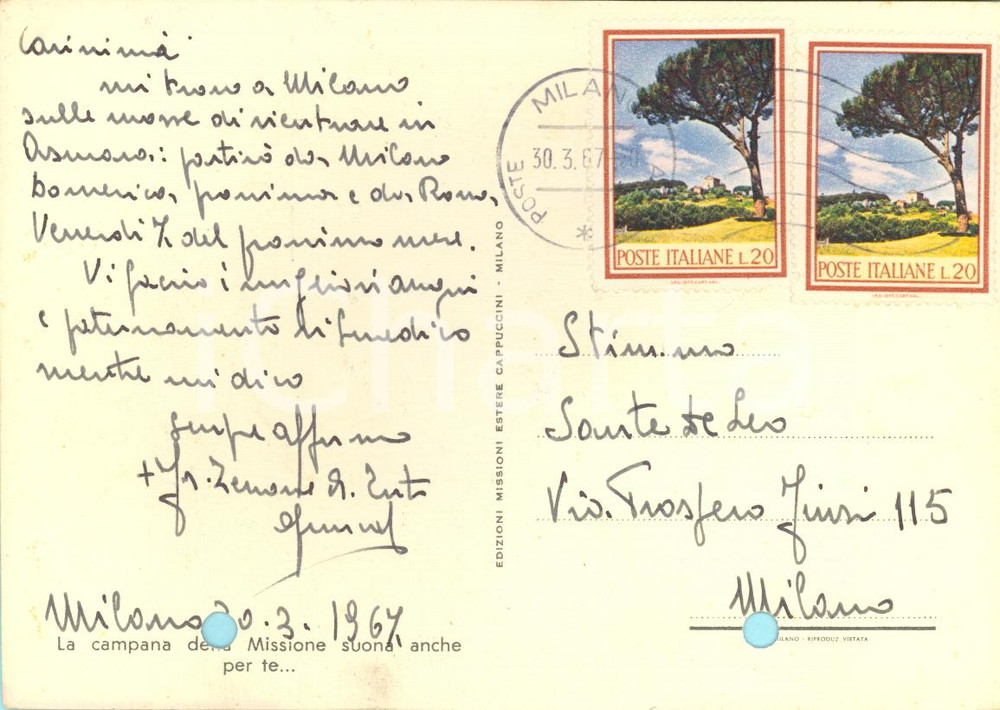 Carissimi
mi trovo a Milano
sulle mosse di rientrare in
Asmara: partirò da Milano
Domenica prossima e da Roma,
Venerdì 7 del prossimo mese.
Vi faccio i migliori auguri
e paternamente vi benedico
mentre mi dico
sempre aff.mo
+ fr. Zenone
Milano 30.3.1967
La campana della Missione suona anche
per te...
EDIZIONI MISSIONI ESTERE CAPPUCCINI - MILANO
POSTE MILANO
30.3.67
POSTE ITALIANE L.20
POSTE ITALIANE L.20
Stim.mo
Sante De Leo
Via Prospero Finzi 115
Milano
MILANO - RIPRODUZ. VIETATA
iCharta